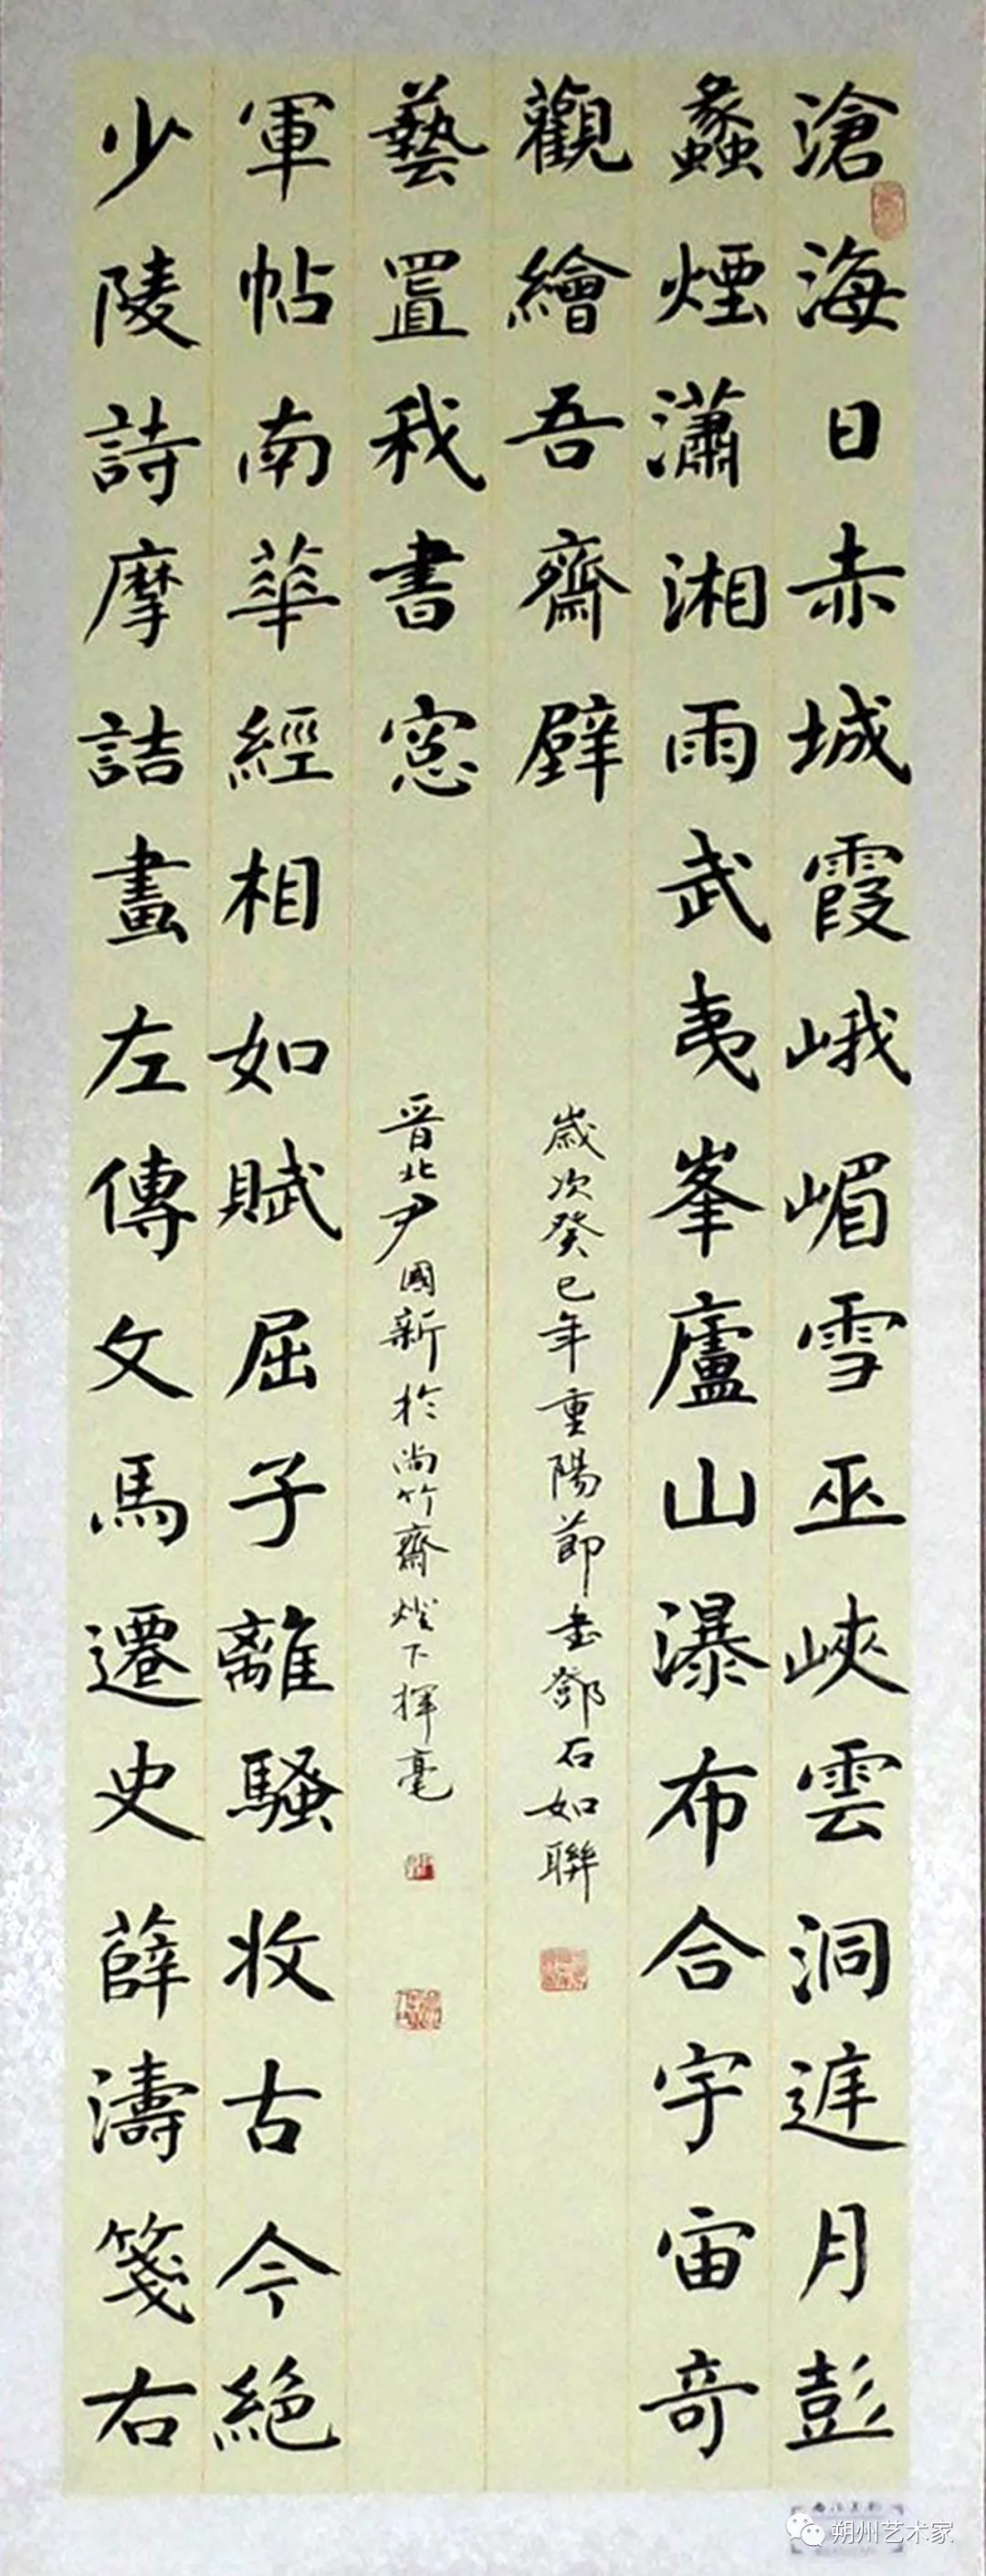 滄海日赤城霞峨嵋雪巫峽雲洞庭月彭
蠡煙瀟湘雨武夷峯廬山瀑布合宇宙奇
觀繪吾齋壁
歲次癸巳年重陽節書鄧石如聯
少陵詩摩詰畫左傳文馬遷史薛濤箋右
軍帖南華經相如賦屈子離騷收古今絕
藝置我書窓
晉北尹國新於尚竹齋燈下揮毫
朔州艺术家